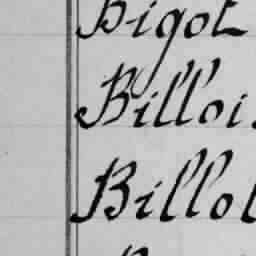 Bigot
Billoi
Billo